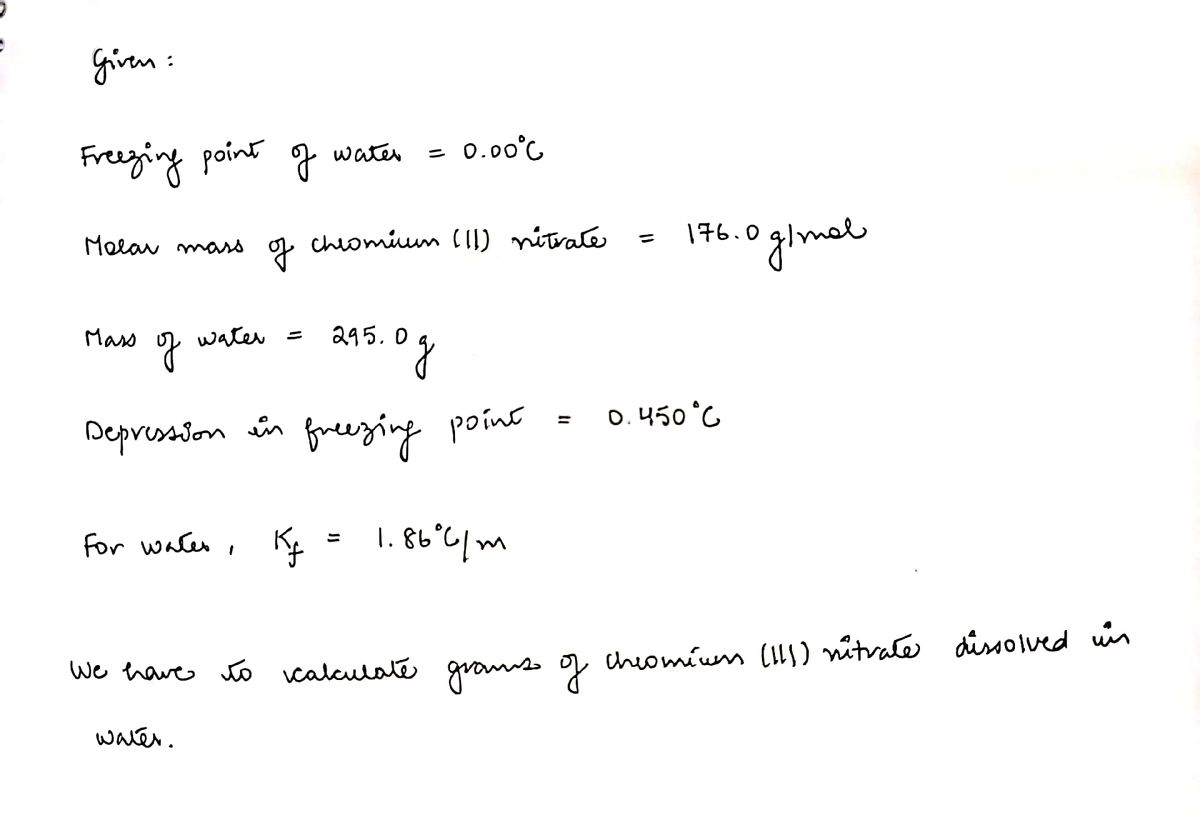 Given :
Freezing point of water = 0.00°C
Molar mass of chromium (II) nitrate = 176.0 g/mol
Mass of water = 295.0 g
Depression in freezing point = 0.450°C
For water, Kf = 1.86°C/m
We have to calculate grams of chromium (III) nitrate dissolved in
water.